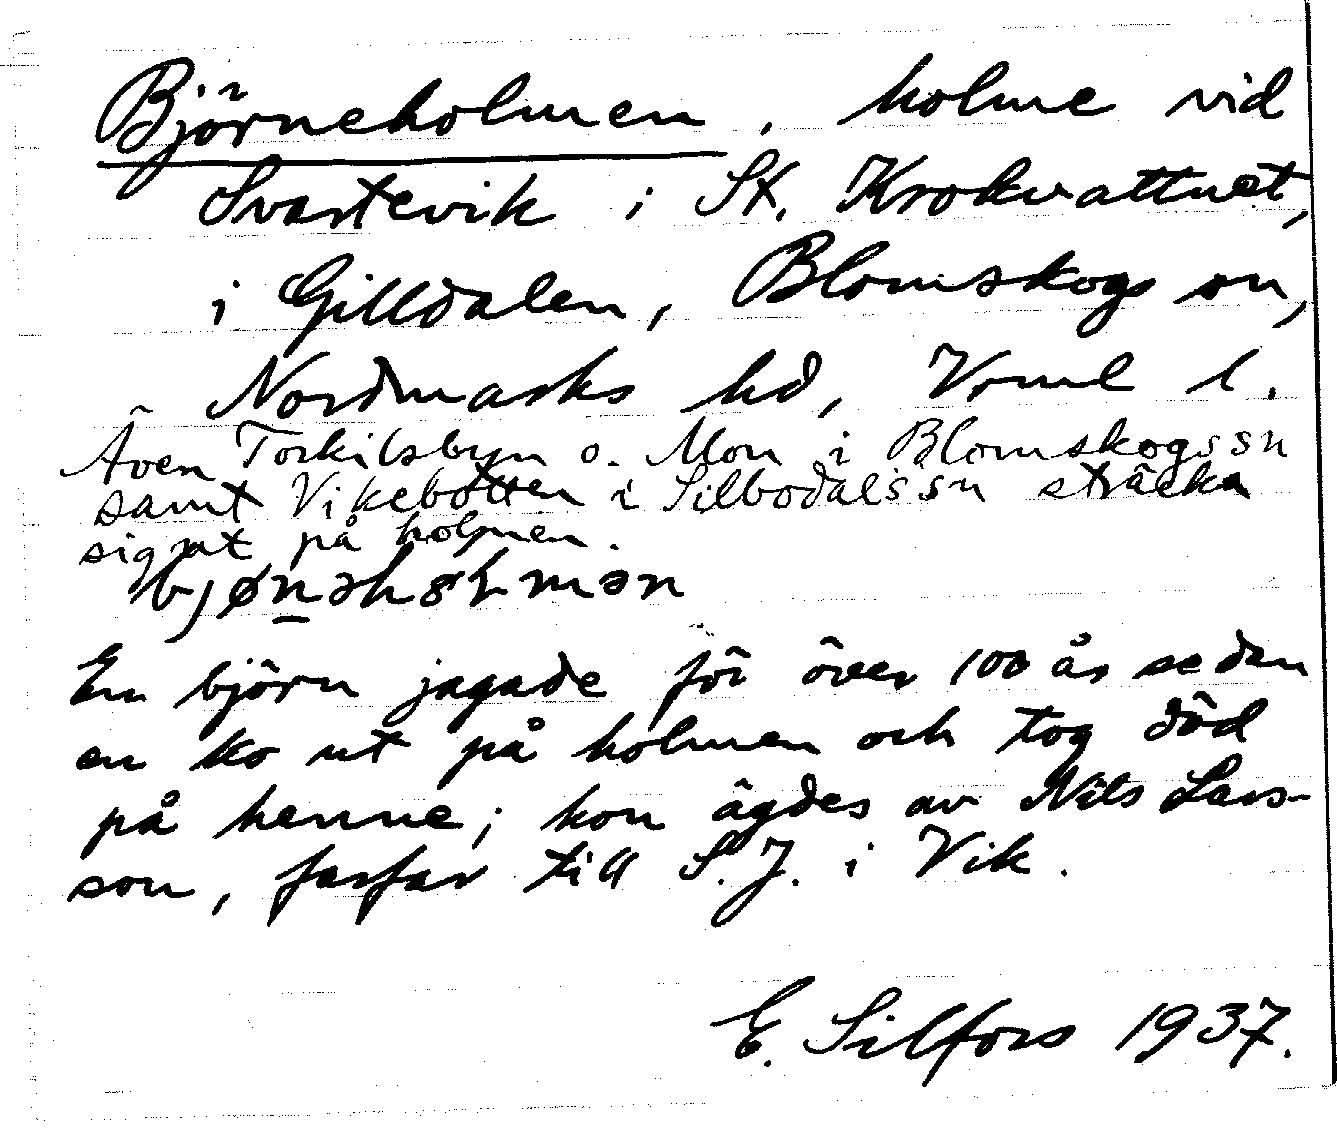 Björneholmen, holme vid
Svartevik i St. Krokvattnet,
i Gilldalen, Blomskogs sn,
Nordmarks hd, Vrml l.
Även Torkilsbyn o. Mon i Blomskogs sn
samt Vikebotten i Silbodals sn sträcka
sig ut på holmen.
En björn jagade för över 100 år sedan
en ko ut på holmen och tog död
på henne; kon ägdes av Nils Lars-
son, farfar till S. J. i Vik.
E. Silfors 1937.